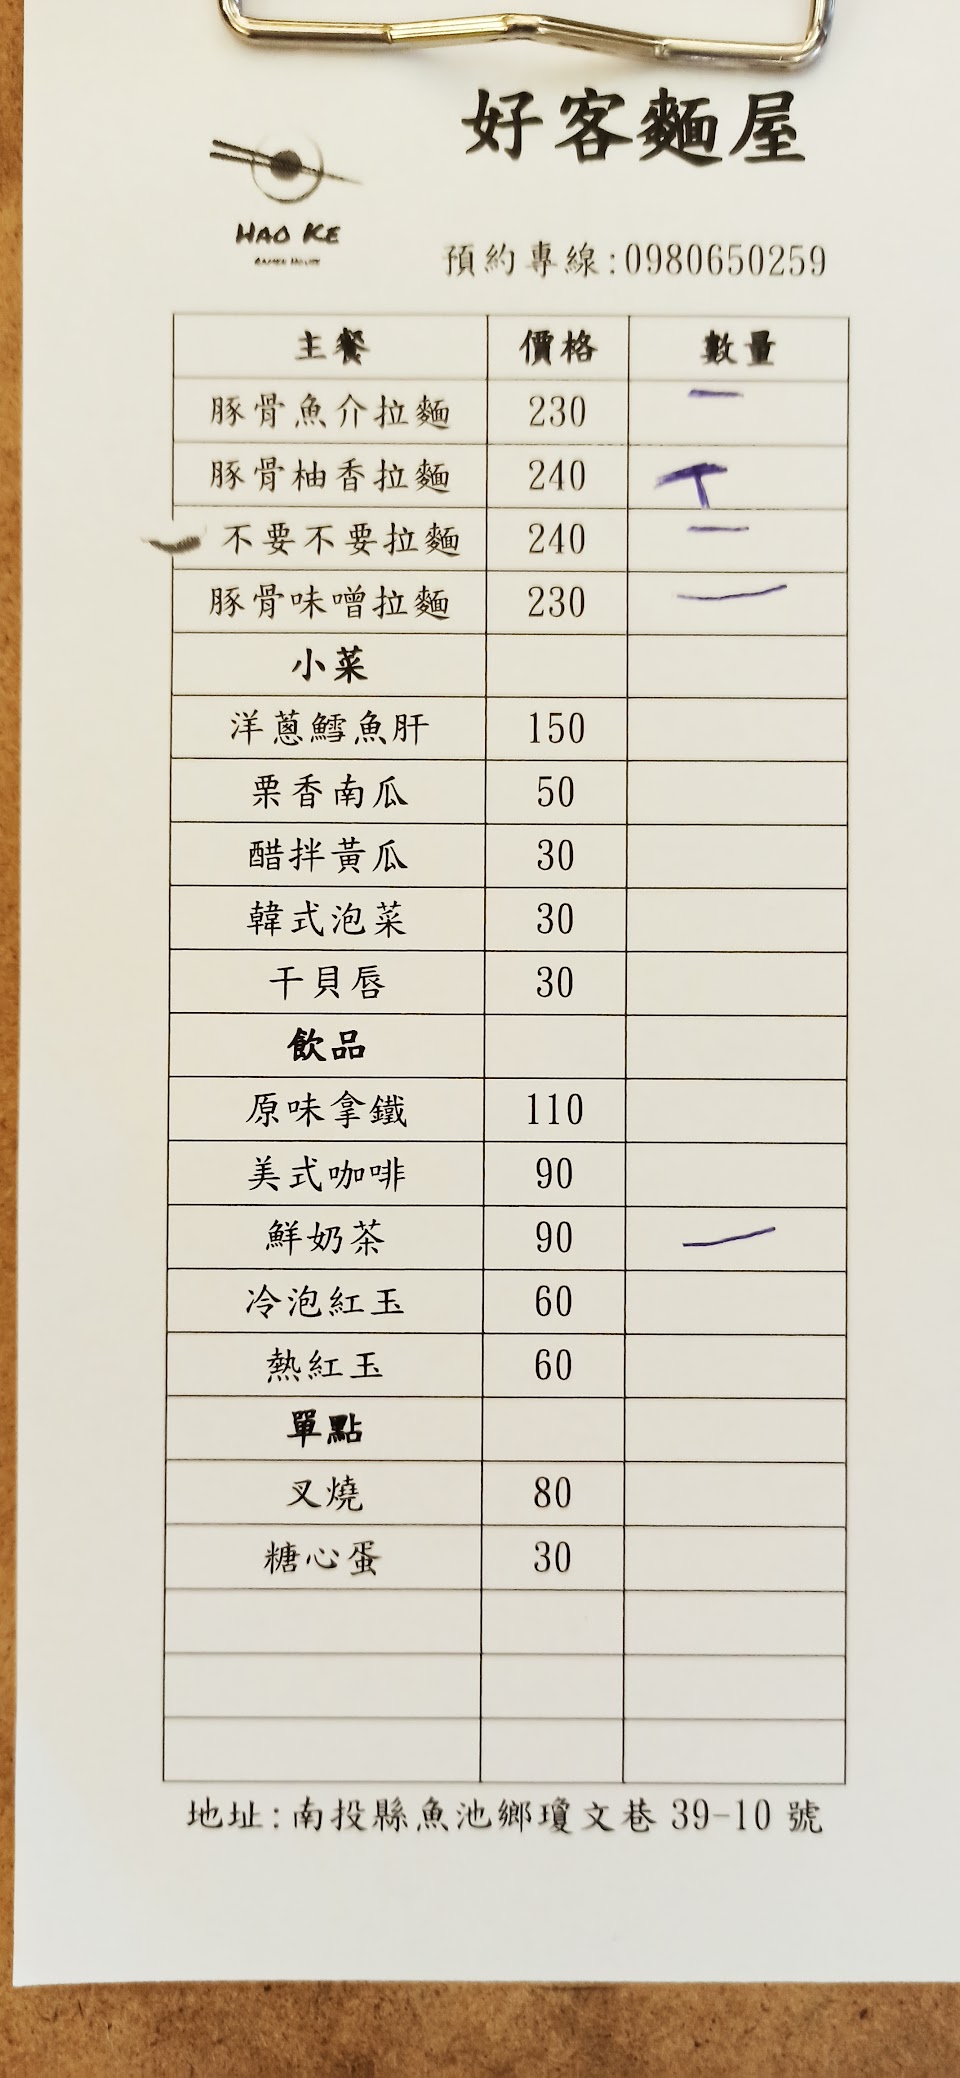 好客麵屋
HAO KE
RAMEN HOUSE
預約專線:0980650259
主餐 價格 數量
豚骨魚介拉麵 230 一
豚骨柚香拉麵 240 丅
不要不要拉麵 240 一
豚骨味噌拉麵 230 一
小菜
洋蔥鱈魚肝 150
栗香南瓜 50
醋拌黃瓜 30
韓式泡菜 30
干貝唇 30
飲品
原味拿鐵 110
美式咖啡 90
鮮奶茶 90 一
冷泡紅玉 60
熱紅玉 60
單點
叉燒 80
糖心蛋 30
地址:南投縣魚池鄉瓊文巷 39-10 號